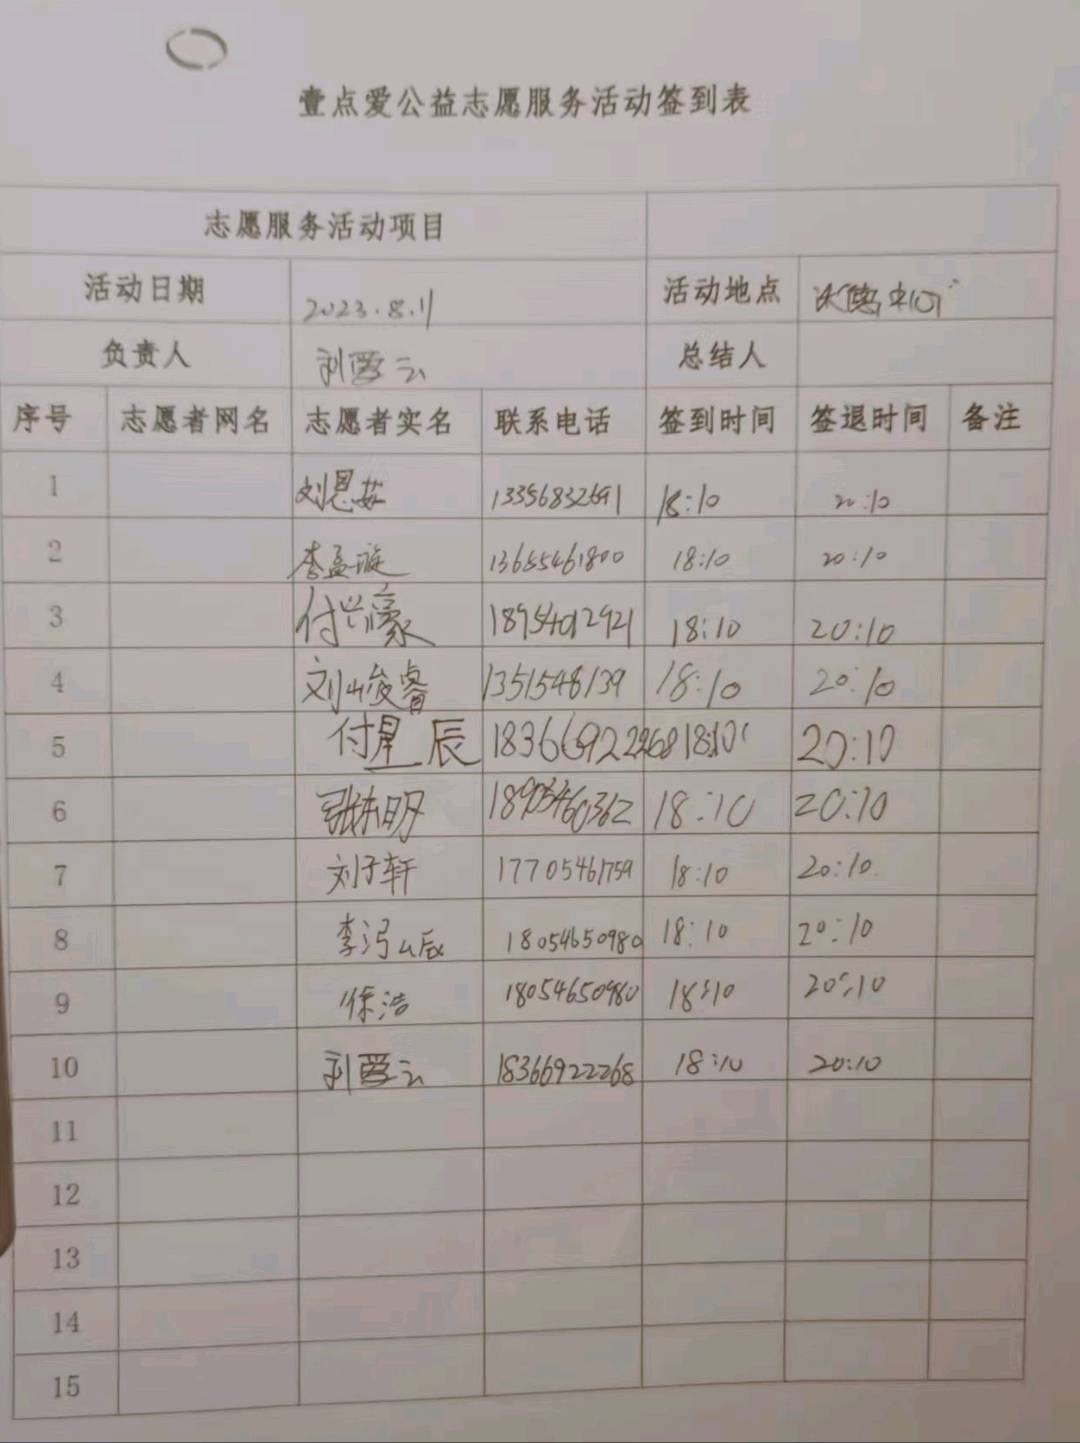 壹点爱公益志愿服务活动签到表
志愿服务活动项目
活动日期 2023.8.11 活动地点
负责人 刘爱云 总结人
序号 志愿者网名 志愿者实名 联系电话 签到时间 签退时间 备注
1 刘恩茹 13356832691 18:10 20:10
2 李孟璇 13655461800 18:10 20:10
3 付兴濠 18954012921 18:10 20:10
4 刘峻睿 1351548139 18:10 20:10
5 付星辰 18:10 20:10
6 张东明 18905460362 18:10 20:10
7 刘子轩 17705461759 18:10 20:10
8 李 18054650980 18:10 20:10
9 徐浩 18054650980 18:10 20:10
10 刘爱云 18366922268 18:10 20:10
11
12
13
14
15